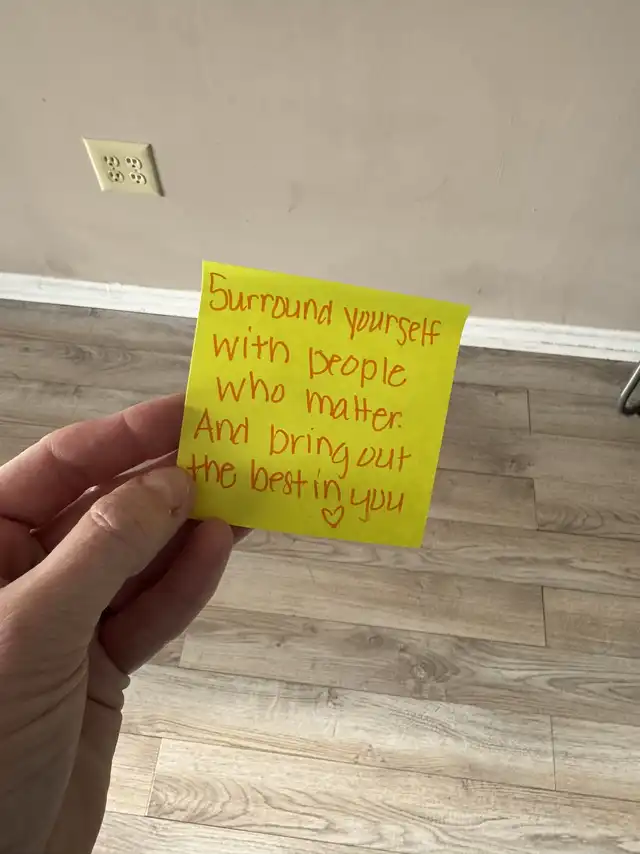 Surround yourself
with people
who matter.
And bring out
the best in you
♡